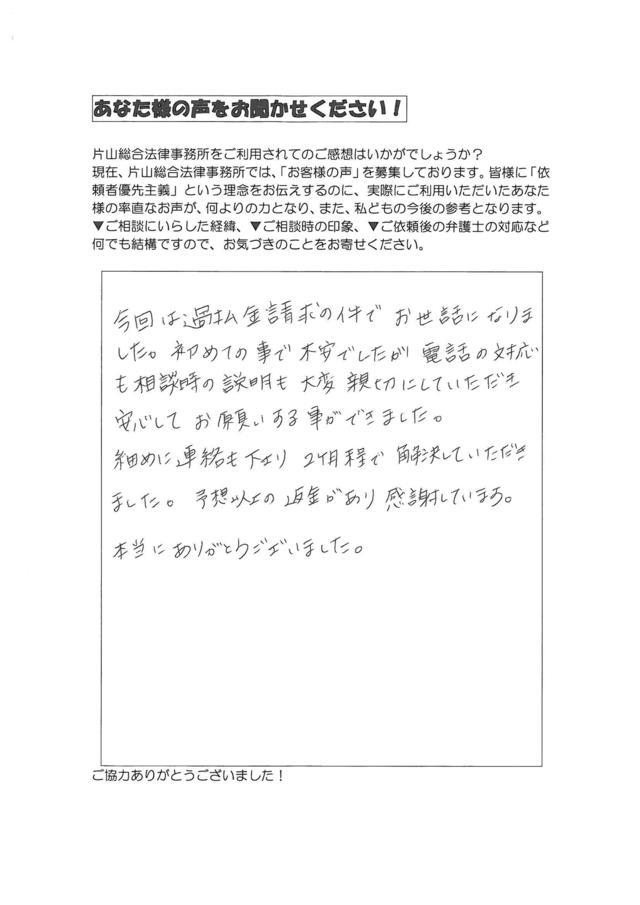 あなた様の声をお聞かせください!
片山総合法律事務所をご利用されてのご感想はいかがでしょうか?
現在、片山総合法律事務所では、「お客様の声」を募集しております。皆様に「依
頼者優先主義」という理念をお伝えするのに、実際にご利用いただいたあなた
様の率直なお声が、何よりの力となり、また、私どもの今後の参考となります。
▼ご相談にいらした経緯、▼ご相談時の印象、▼ご依頼後の弁護士の対応など
何でも結構ですので、お気づきのことをお寄せください。
今回は過払金請求の件で お世話になりま
した。初めての事で不安でしたが 電話の対応
も相談時の説明も 大変 親切にしていただき
安心して お願いする事ができました。
細めに連絡も下さり 2ヶ月程で 解決していただき
ました。予想以上の返金があり 感謝しています。
本当にありがとうございました。
ご協力ありがとうございました!